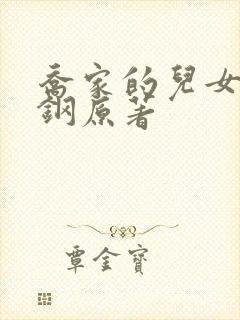 喬家的兒女
鋼原著
覃金寶